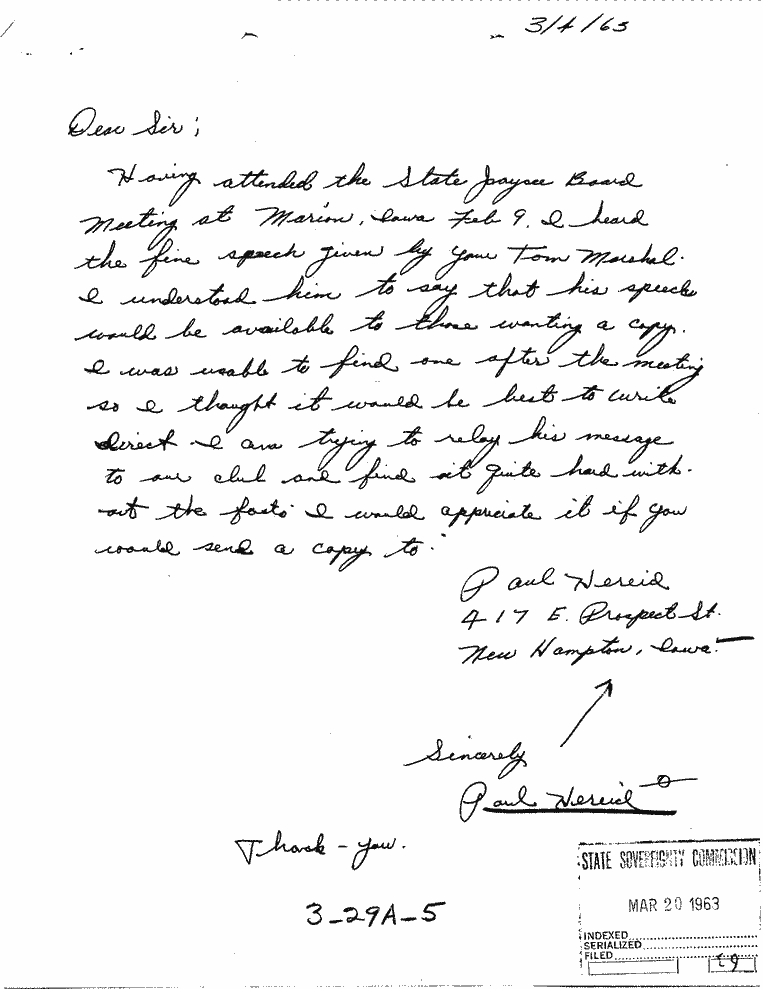 3/4/63
Dear Sir;
Having attended the State Jaycee Board
Meeting at Marion, Iowa Feb 9. I heard
the fine speech given by your Tom Marshal.
I understood him to say that his speech
would be available to those wanting a copy.
I was unable to find one after the meeting
so I thought it would be best to write
direct I am trying to relay his message
to our club and find it quite hard with-
out the facts. I would appriciate it if you
would send a copy to.
Paul Nereid
417 E. Prospect St.
New Hampton, Iowa.
Sincerely
Paul Nereid
Thank-you.
3-29A-5
STATE SOVEREIGNTY COMMISSION
MAR 20 1963
INDEXED
SERIALIZED
FILED